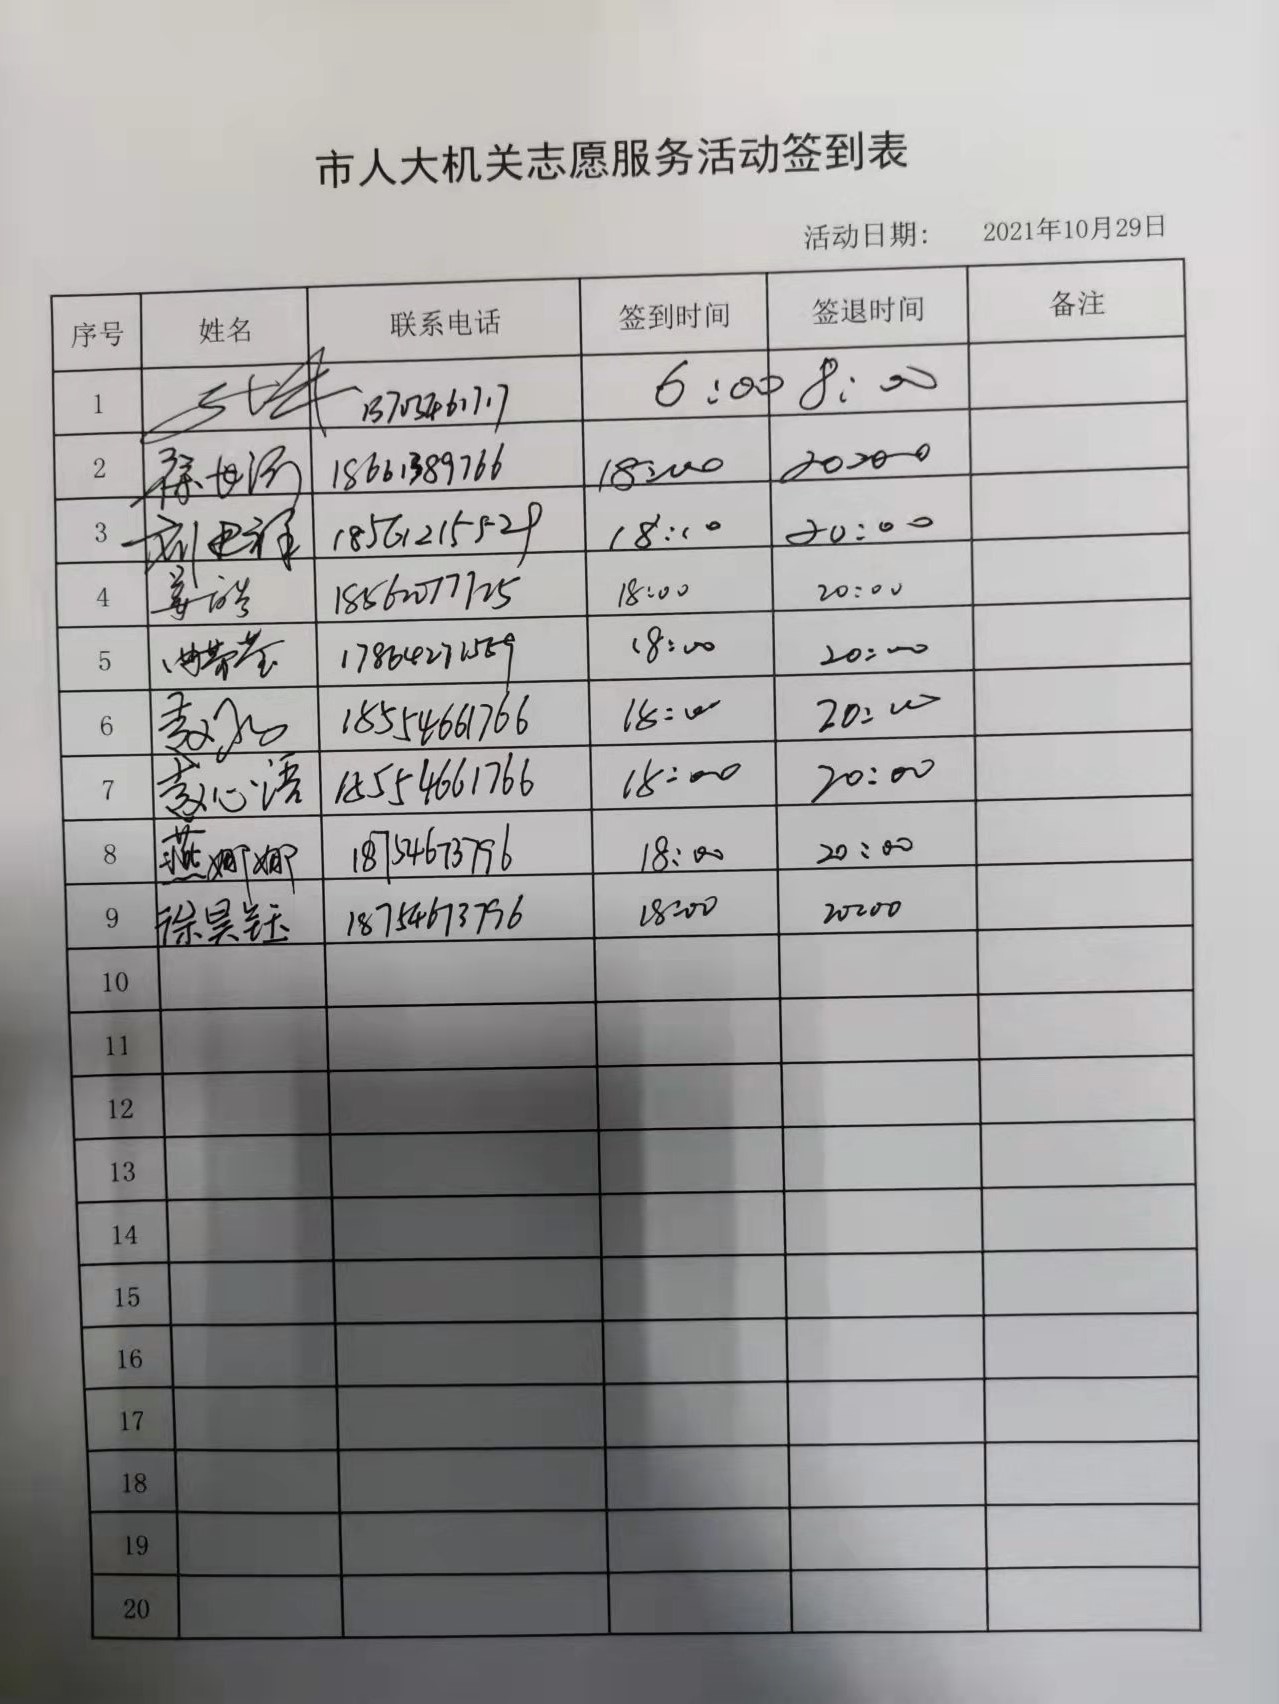 市人大机关志愿服务活动签到表
活动日期: 2021年10月29日
序号 姓名 联系电话 签到时间 签退时间 备注
1 6:00 8:00
2 18661389766 18:00 20:00
3 18561215529 18:10 20:00
4 姜浩 18:00 20:00
5 18:00 20:00
6 18554661766 18:00 20:00
7 袁心语 18554661766 18:00 20:00
8 燕娜娜 18754673796 18:00 20:00
9 徐昊钰 18754673796 18:00 20:00
10
11
12
13
14
15
16
17
18
19
20